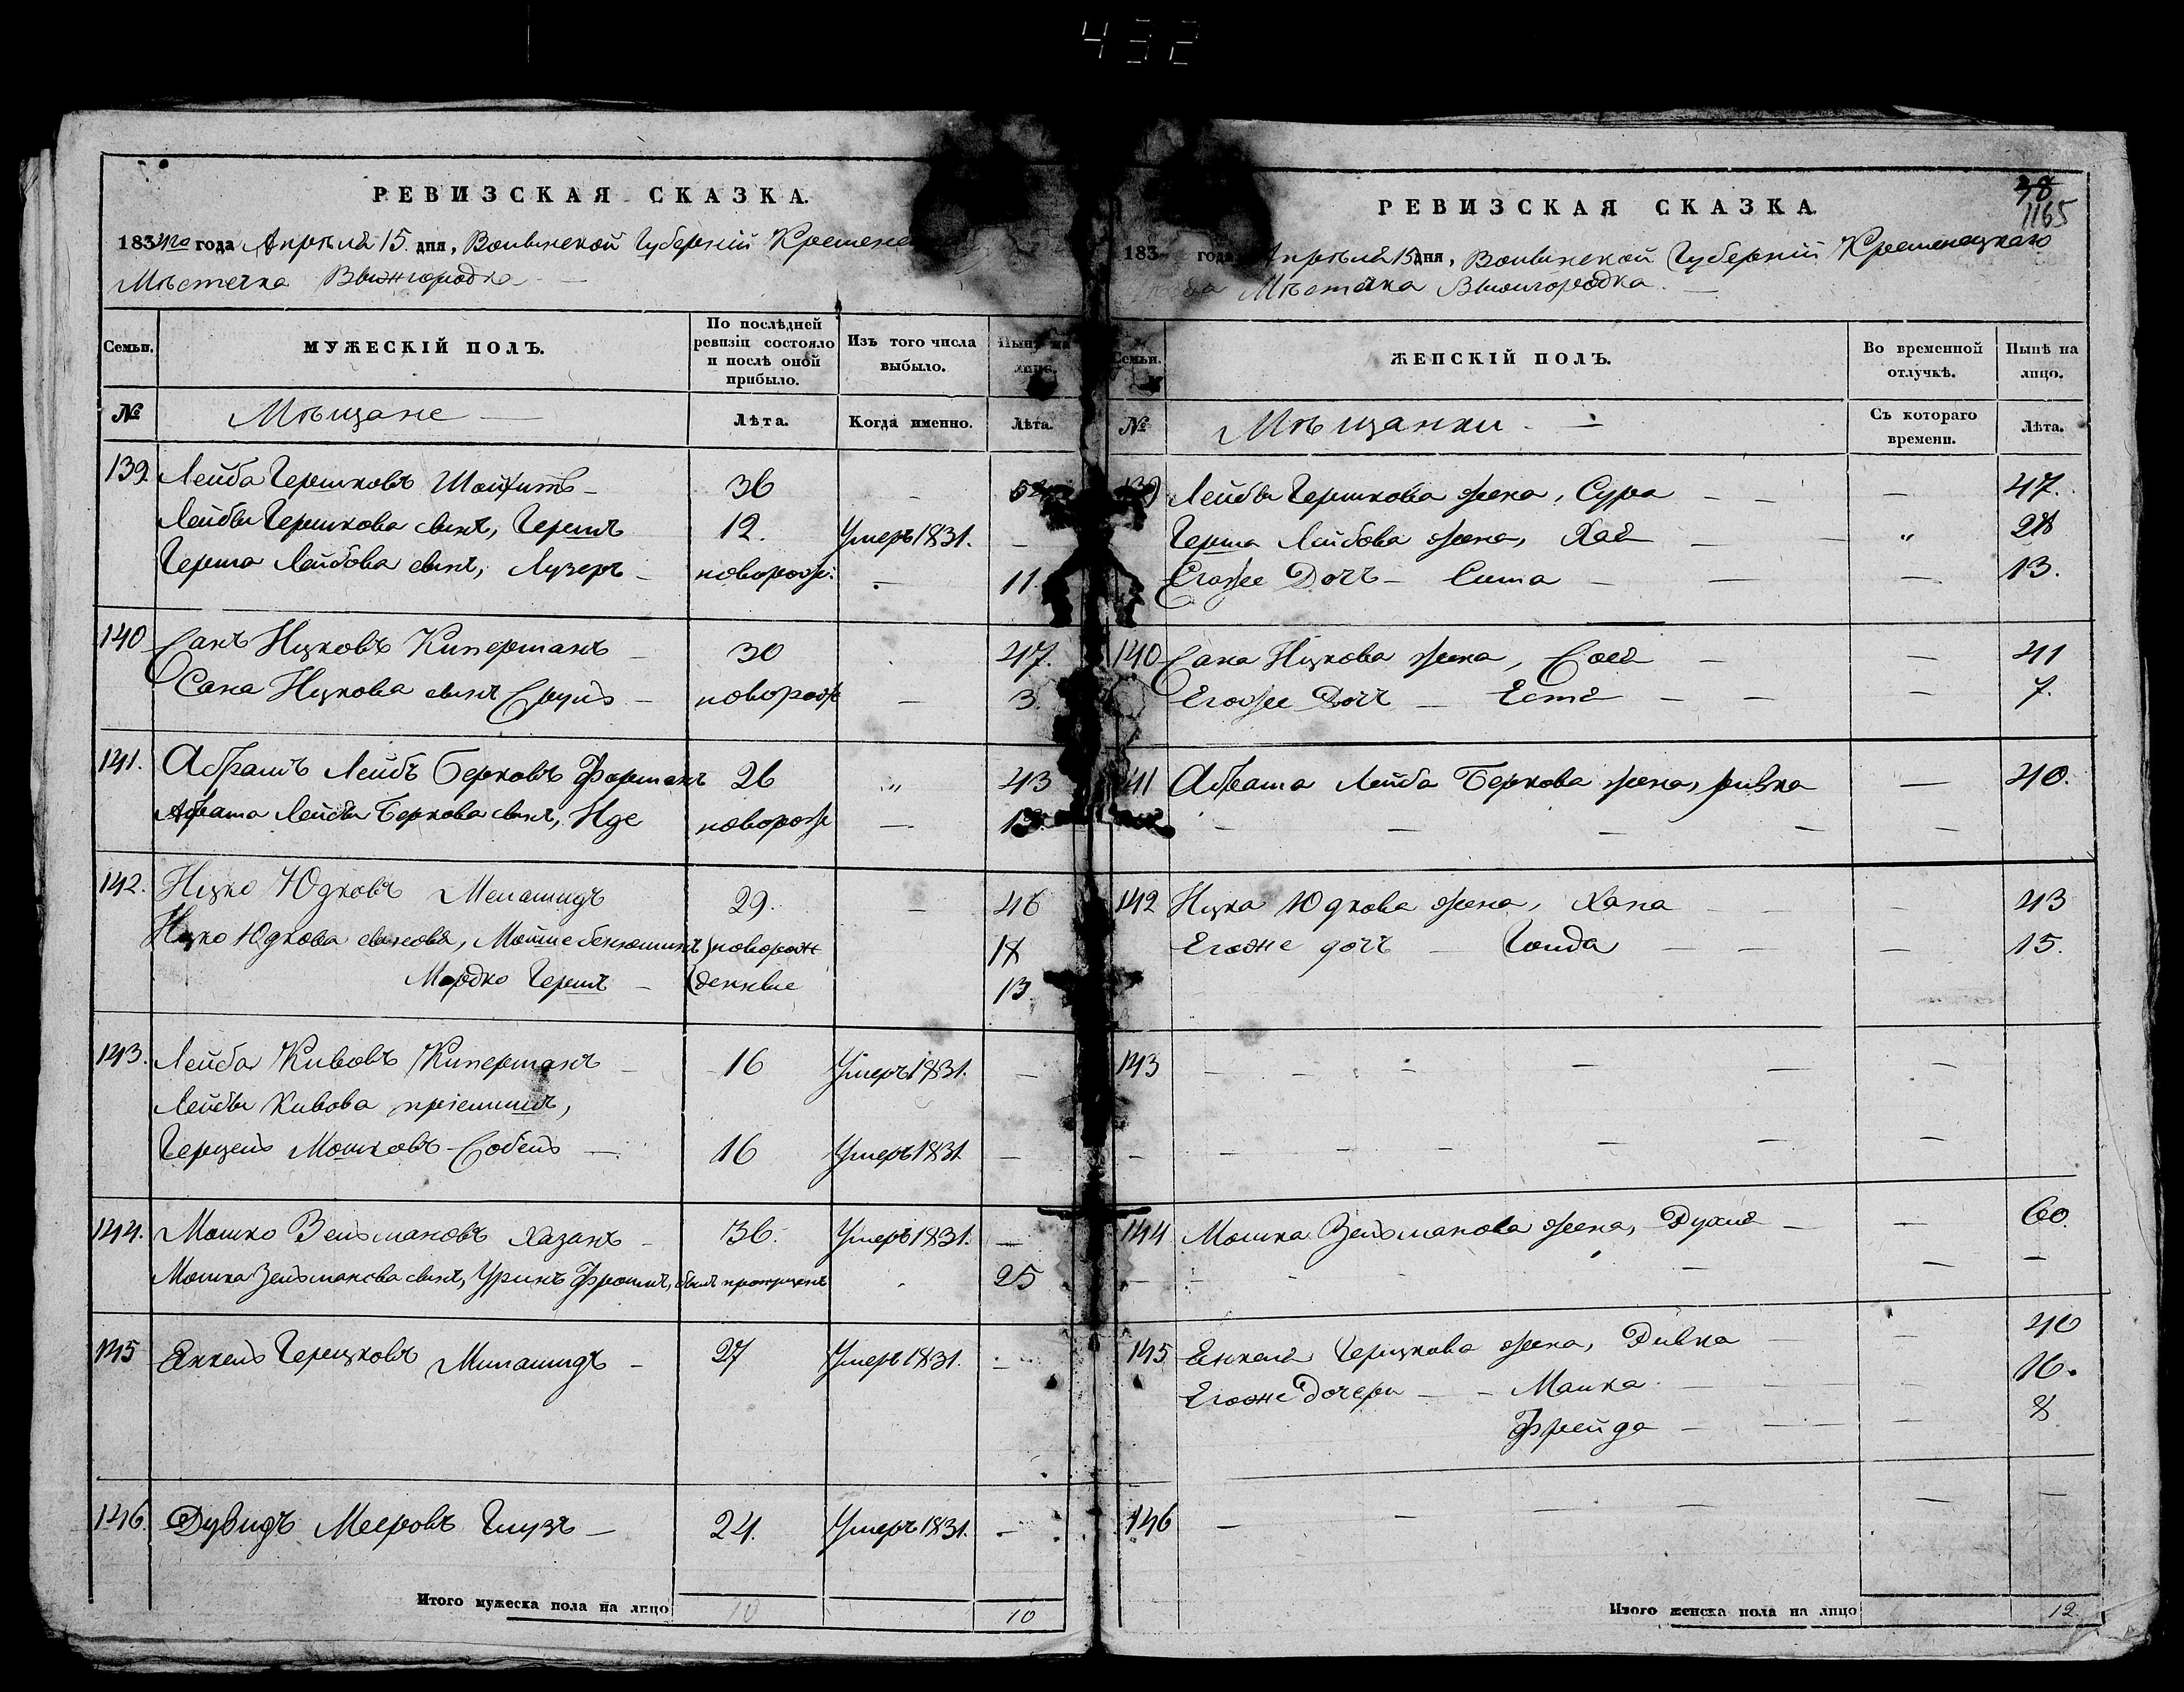 432
РЕВИЗСКАЯ СКАЗКА.
1834го года Апрѣля 15 дня, Волынской Губерніи Кременец
Мѣстечка Вышгородка
Семьи.
МУЖЕСКІЙ ПОЛЪ.
По послѣдней ревизіи состояло и послѣ оной прибыло.
Изъ того числа выбыло.
Нынѣ на лицо.
№
Мѣщане
Лѣта.
Когда именно.
Лѣта.
139 Лейба Гершковъ Шойхитъ 36
Лейбы Гершкова сынъ, Гершъ 12. Умеръ 1831.
Герша Лейбова сынъ, Лузеръ новорож. 11.
140 Санъ Ицковъ Киперманъ 30 47.
Сана Ицкова сынъ Сруль новорож 3.
141. Абрамъ Лейбъ Берковъ Фурманъ 26 " 43
Абрама Лейбы Беркова сынъ, Иде новорож
142. Ицко Юдковъ Менашидъ 29. 46
Ицко Юдкова сыновья, Мойше бенюминъ новорож 18
Мордко Гершъ денные 13
143. Лейба Кивовъ Киперманъ 16 Умеръ 1831.
Лейбы Кивова пріемышъ,
Герцель Мошковъ Собель 16 Умеръ 1831
144. Мошко Зельмановъ Хазанъ 36. Умеръ 1831.
Мошка Зельманова сынъ, Урынъ Фроимъ, былъ пропущенъ 25
145 Янкель Герцковъ Минашидъ 27 Умеръ 1831.
146. Дувидъ Мееровъ Глузъ 24. Умеръ 1831.
Итого мужеска пола на лицо 10 10
38
1165
РЕВИЗСКАЯ СКАЗКА.
183 года Апрѣля 15 дня, Волынской Губерніи Кременецкаго
Мѣстечка Вышгородка.
Семьи.
ЖЕНСКІЙ ПОЛЪ.
Во временной отлучкѣ.
Нынѣ на лицо.
№
Мѣщанки.
Съ котораго времени.
Лѣта.
139 Лейбы Гершкова жена, Сура 47.
Герша Лейбова жена, Хая " 28
Егоже Дочь Сима 13.
140 Сана Ицкова жена, Сося 41
Егоже Дочь Естя 7.
141 Абрама Лейба Беркова жена, ривка 40.
142 Ицка Юдкова жена, Хана 43
Егоже дочь Голда 15.
143
144 Мошка Зельманова жена, Духня 60.
145 Янкеля Герцкова жена, Ривка 40
Егоже Дочери Малка 16.
Фрейда 8
146
Итого женска пола на лицо 12.